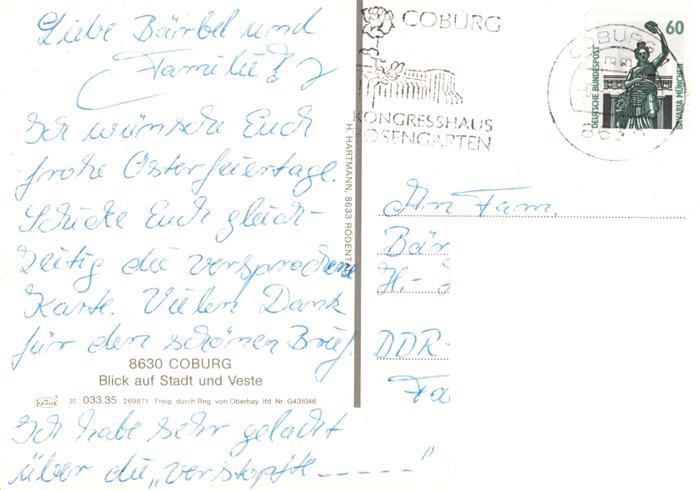 Liebe Bärbel und
Familie!
Ich wünsche Euch
frohe Osterfeiertage.
Schicke Euch gleich-
zeitig die versprochene
Karte. Vielen Dank
für den schönen Brief.
8630 COBURG
Blick auf Stadt und Veste
31. 033.35 269871 Freig. durch Reg. von Oberbay lfd. Nr. G431046
Ich habe sehr gelacht
über die „verstopfte _ _ _ _ _"
H. HARTMANN, 8633 RÖDENT
COBURG
KONGRESSHAUS
ROSENGARTEN
COBURG
863
60
DEUTSCHE BUNDESPOST
BAVARIA MÜNCHEN
An Fam.
Bär
H.-
DDR-